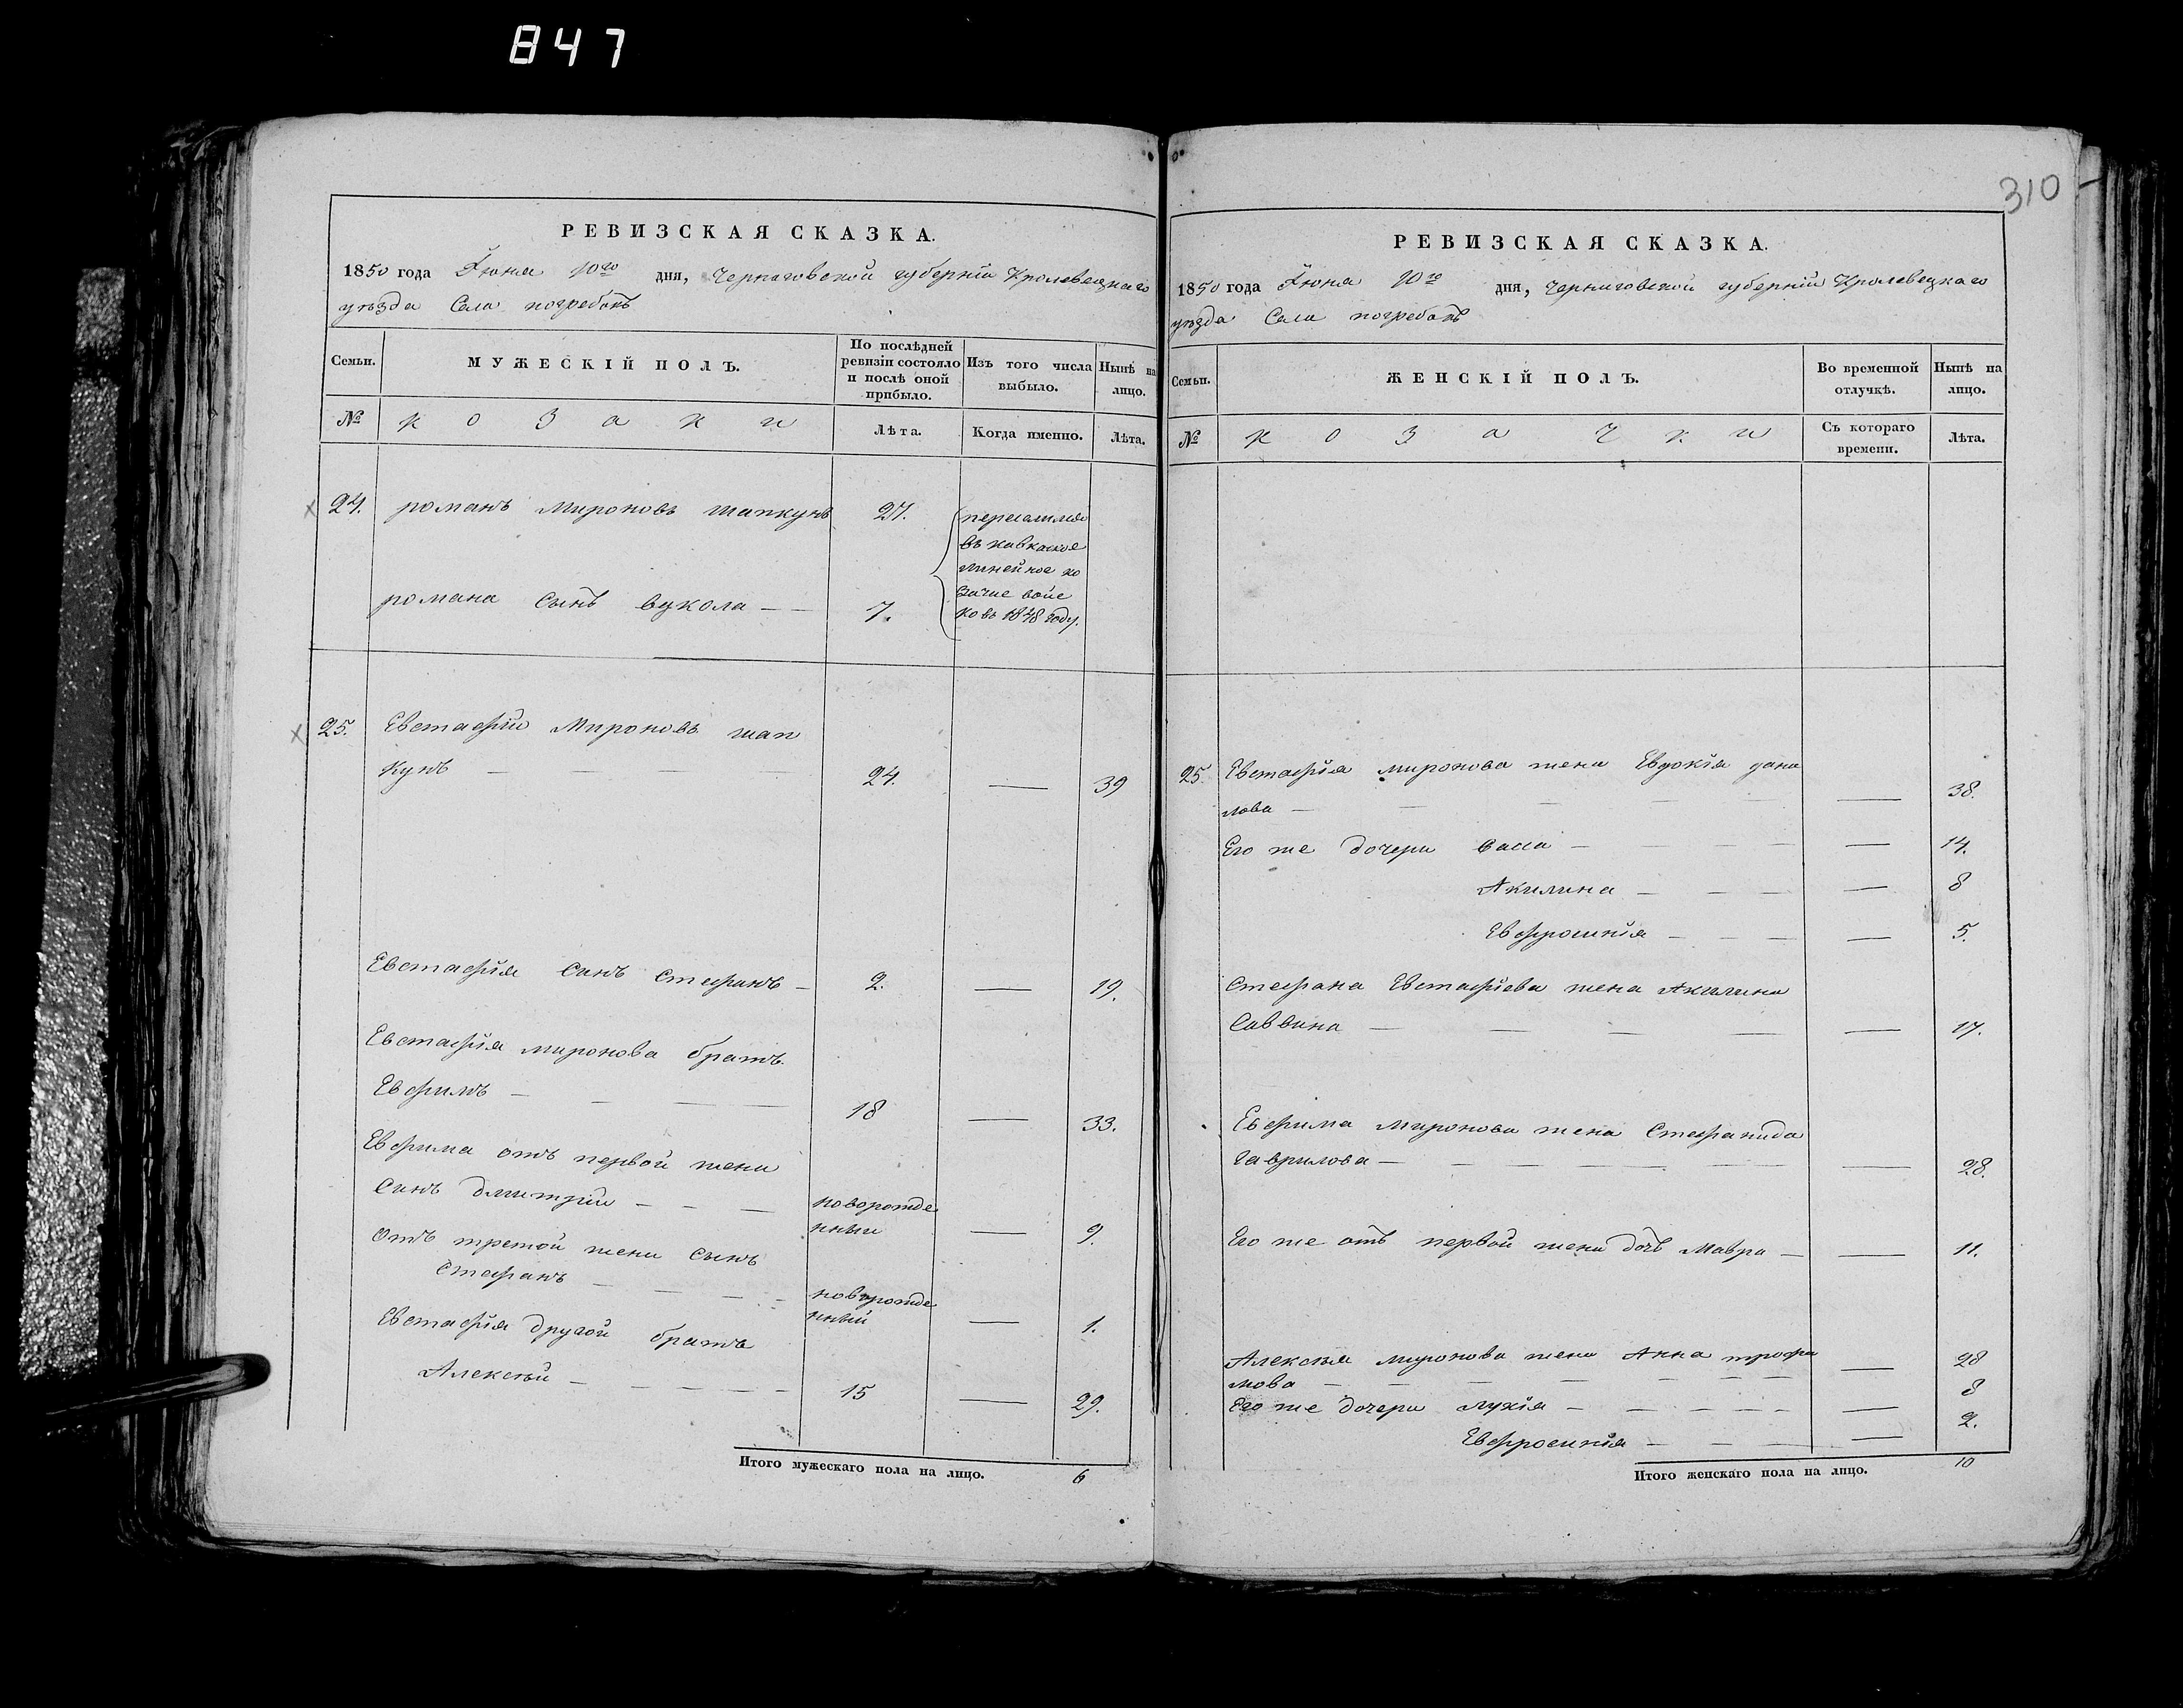 847
310
РЕВИЗСКАЯ СКАЗКА.
1850 года Іюня 10го дня, Черниговской губерніи Кролевецкаго
уѣзда Села погребокъ
Семьи. МУЖЕСКІЙ ПОЛЪ. По послѣдней ревизіи состояло и послѣ оной прибыло. Изъ того числа выбыло. Нынѣ на лицо.
№ козаки Лѣта. Когда именно. Лѣта.
24. романъ Мироновъ шапкунъ 27. переселился
въ кавкаское
линейное ко
зачье войс
романа сынъ вукола 7. ко въ 1848 году.
25. Евстафій Мироновъ шап
кунъ 24. 39
Евстафія синъ Стефанъ 2. 19.
Евстафія миронова братъ
Евфимъ 18 33.
Евфима отъ первой жени
синъ дмитрій новорожде
нный 9.
отъ третой жени сынъ
Стефанъ новорожде
нный 1.
Евстафія другой братъ
Алексѣй 15 29.
Итого мужескаго пола на лицо. 6
РЕВИЗСКАЯ СКАЗКА.
1850 года Іюня 10го дня, Черниговской губерніи Кролевецкаго
уѣзда Села погребокъ
Семьи. ЖЕНСКІЙ ПОЛЪ. Во временной отлучкѣ. Нынѣ на лицо.
№ козачки Съ котораго времени. Лѣта.
25 Евстафія миронова жена Евдокія дани
лова 38.
Его же дочери Васса 14.
Акилина 8
Евфросинія 5.
Стефана Евстафіева жена Акилина
Саввина 17.
Евфима Миронова жена Стефанида
Гаврилова 28.
Его же отъ первой жени дочь Мавра 11.
Алексѣя миронова жена Анна трофи
мова 28
Его же дочери лукія 8
Евфросинія 2.
Итого женскаго пола на лицо. 10